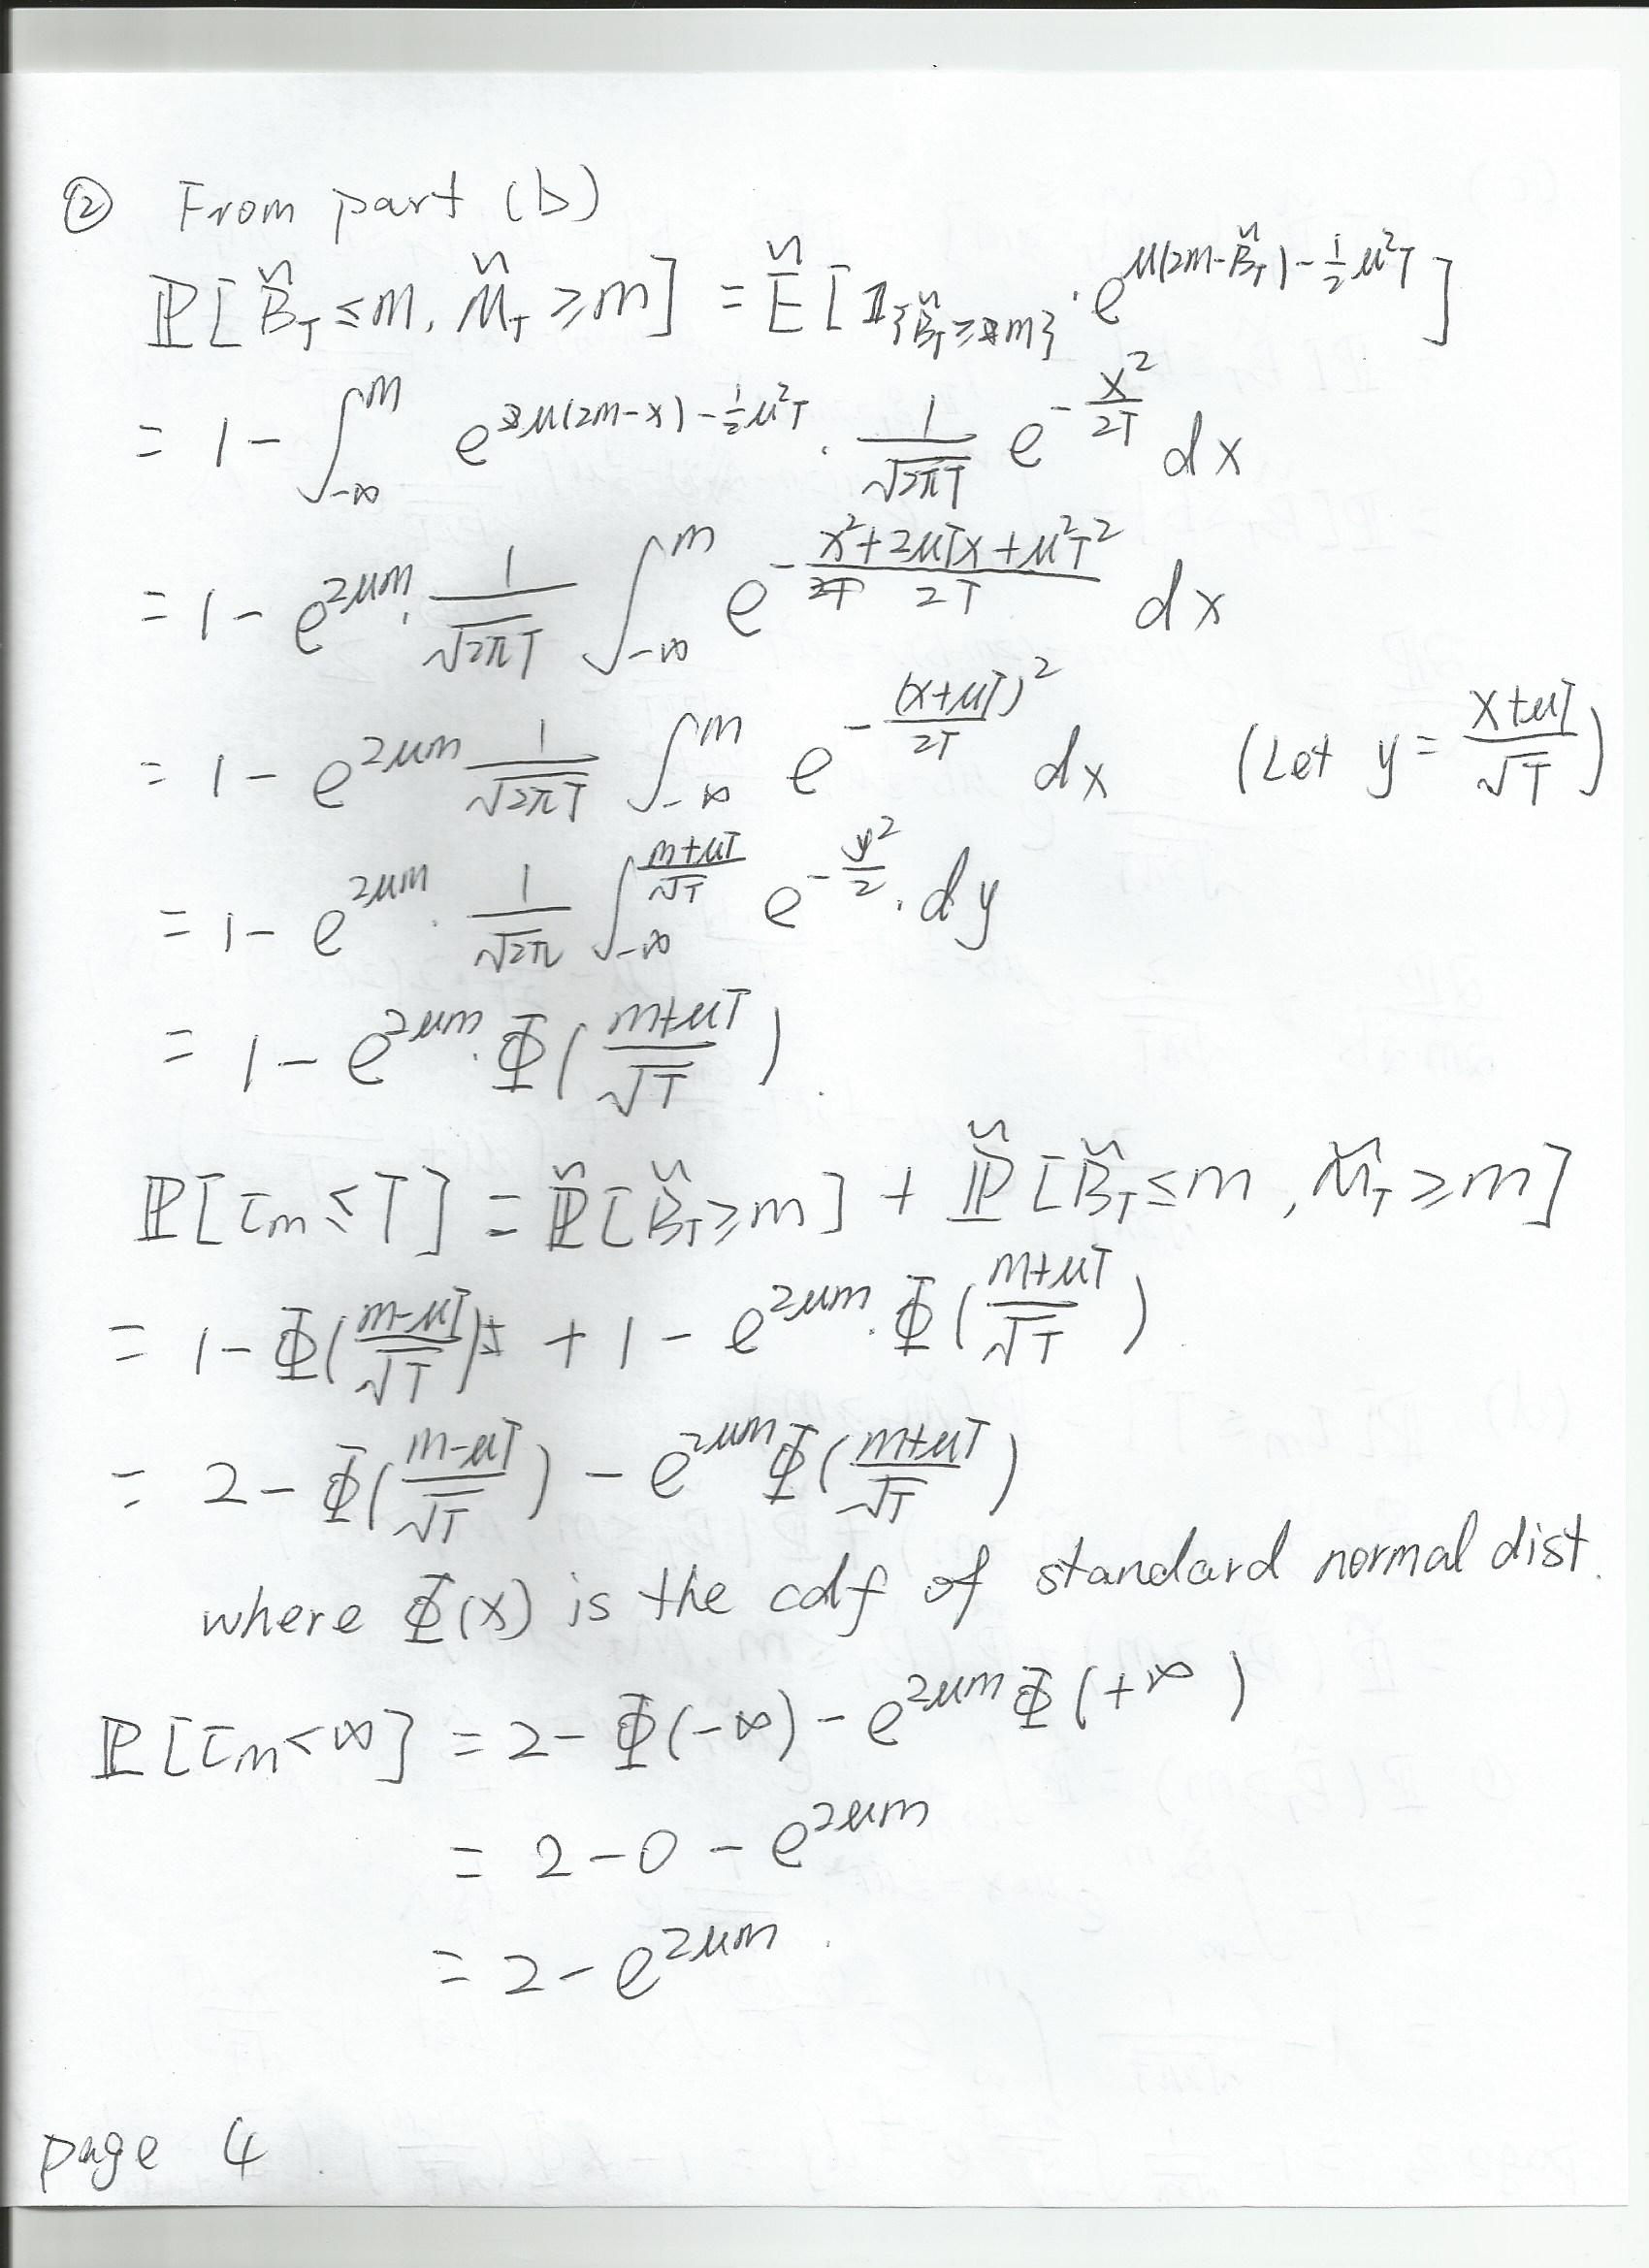 ② From part (b)
ℙ[B̆_T ≤ m, M̆_T ≥ m] = Ĕ[𝟙_{B̆_T ≥ m} · e^{μ(2m-B̆_T) - ½μ²T}]
= 1 - ∫_{-∞}^{m} e^{μ(2m-x) - ½μ²T} · 1/√(2πT) e^{-x²/2T} dx
= 1 - e^{2μm} · 1/√(2πT) ∫_{-∞}^{m} e^{-(x²+2μTx+μ²T²)/2T} dx
= 1 - e^{2μm} 1/√(2πT) ∫_{-∞}^{m} e^{-(x+μT)²/2T} dx (Let y = (x+μT)/√T)
= 1 - e^{2μm} · 1/√(2π) ∫_{-∞}^{(m+μT)/√T} e^{-y²/2} · dy
= 1 - e^{2μm} · Φ((m+μT)/√T).
ℙ[τ_m ≤ T] = ℙ̆[B̆_T ≥ m] + ℙ̆[B̆_T ≤ m, M̆_T ≥ m]
= 1 - Φ((m-μT)/√T) + 1 - e^{2μm} · Φ((m+μT)/√T)
= 2 - Φ((m-μT)/√T) - e^{2μm} Φ((m+μT)/√T)
where Φ(x) is the cdf of standard normal dist.
ℙ[τ_m < ∞] = 2 - Φ(-∞) - e^{2μm} Φ(+∞)
= 2 - 0 - e^{2μm}
= 2 - e^{2μm}.
page 4